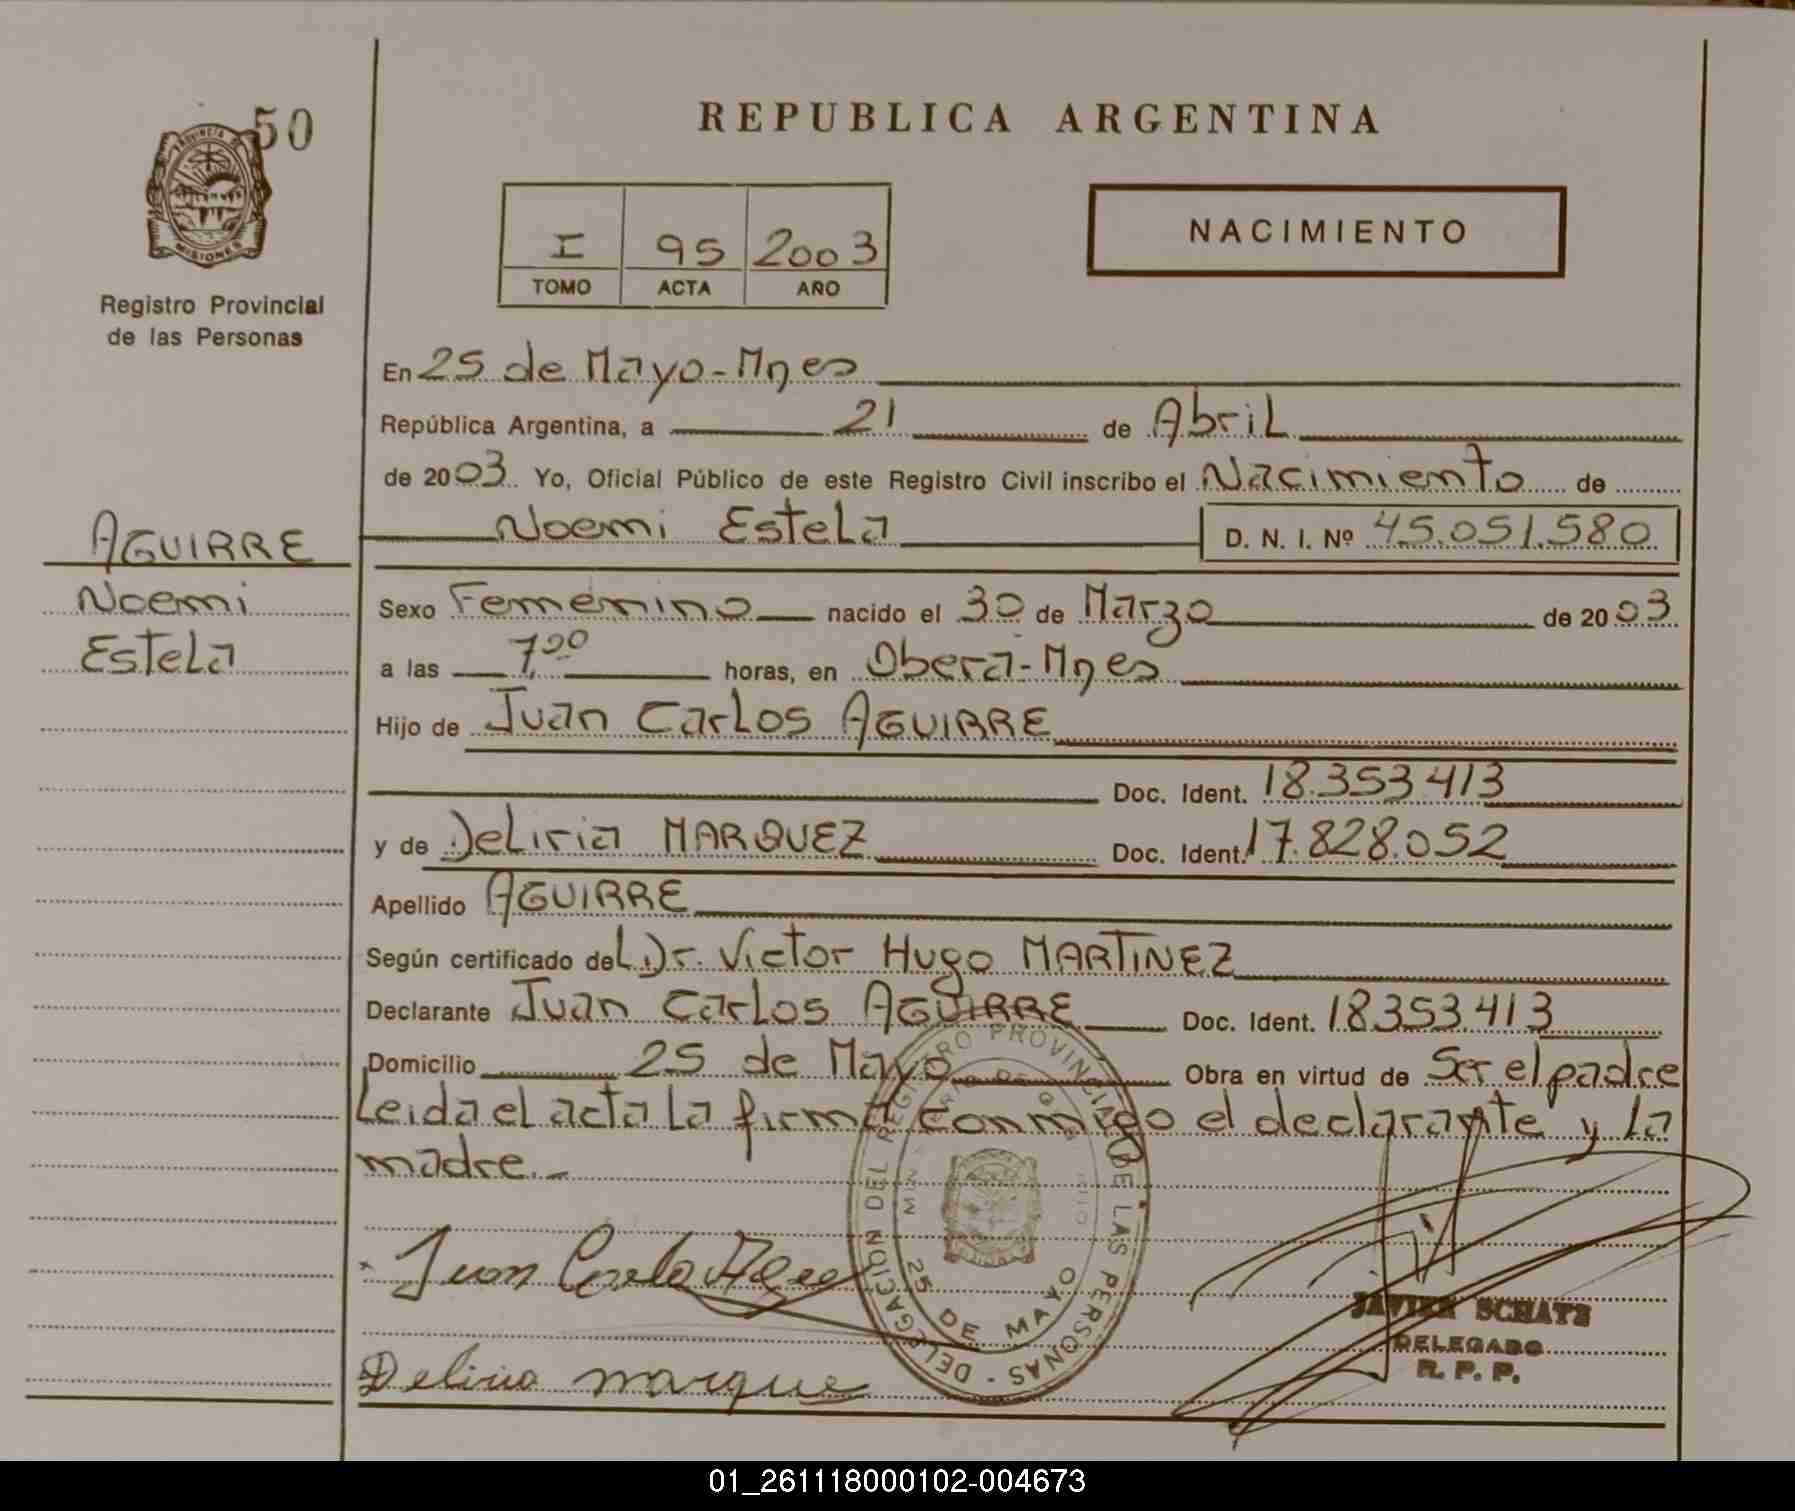 50
PROVINCIA DE
MISIONES
Registro Provincial
de las Personas
REPUBLICA ARGENTINA
I 95 2003
TOMO ACTA AÑO
NACIMIENTO
En 25 de Mayo - Mnes
República Argentina, a 21 de Abril
de 2003. Yo, Oficial Público de este Registro Civil inscribo el Nacimiento de
Noemi Estela D. N. I. Nº 45.051.580
AGUIRRE
Noemi
Estela
Sexo Femenino nacido el 30 de Marzo de 2003
a las 7,00 horas, en Oberá - Mnes
Hijo de Juan Carlos AGUIRRE
Doc. Ident. 18.353.413
y de Deliria MARQUEZ Doc. Ident. 17.828.052
Apellido AGUIRRE
Según certificado del Dr. Victor Hugo MARTINEZ
Declarante Juan Carlos AGUIRRE Doc. Ident. 18.353.413
Domicilio 25 de Mayo Obra en virtud de Ser el padre
Leida el acta la firma conmigo el declarante y la
madre.-
Juan Carlo
Deliria marque
DELEGACION DEL REGISTRO PROVINCIAL DE LAS PERSONAS -
25 DE MAYO
JAVIER SCHATZ
DELEGADO
R. P. P.
01_261118000102-004673